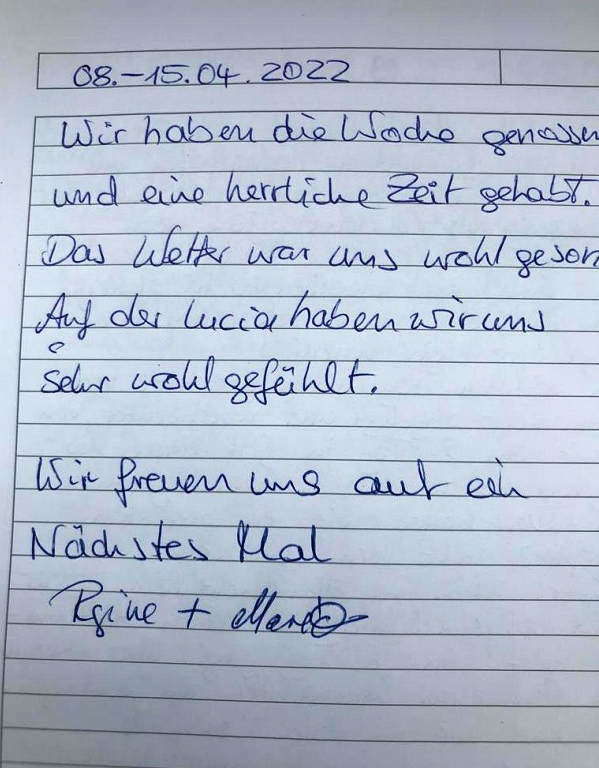 08.-15.04.2022
Wir haben die Woche genossen
und eine herrliche Zeit gehabt.
Das Wetter war uns wohl geson
Auf der Lucia haben wir uns
sehr wohl gefühlt.
Wir freuen uns auf ein
Nächstes Mal
Regine +